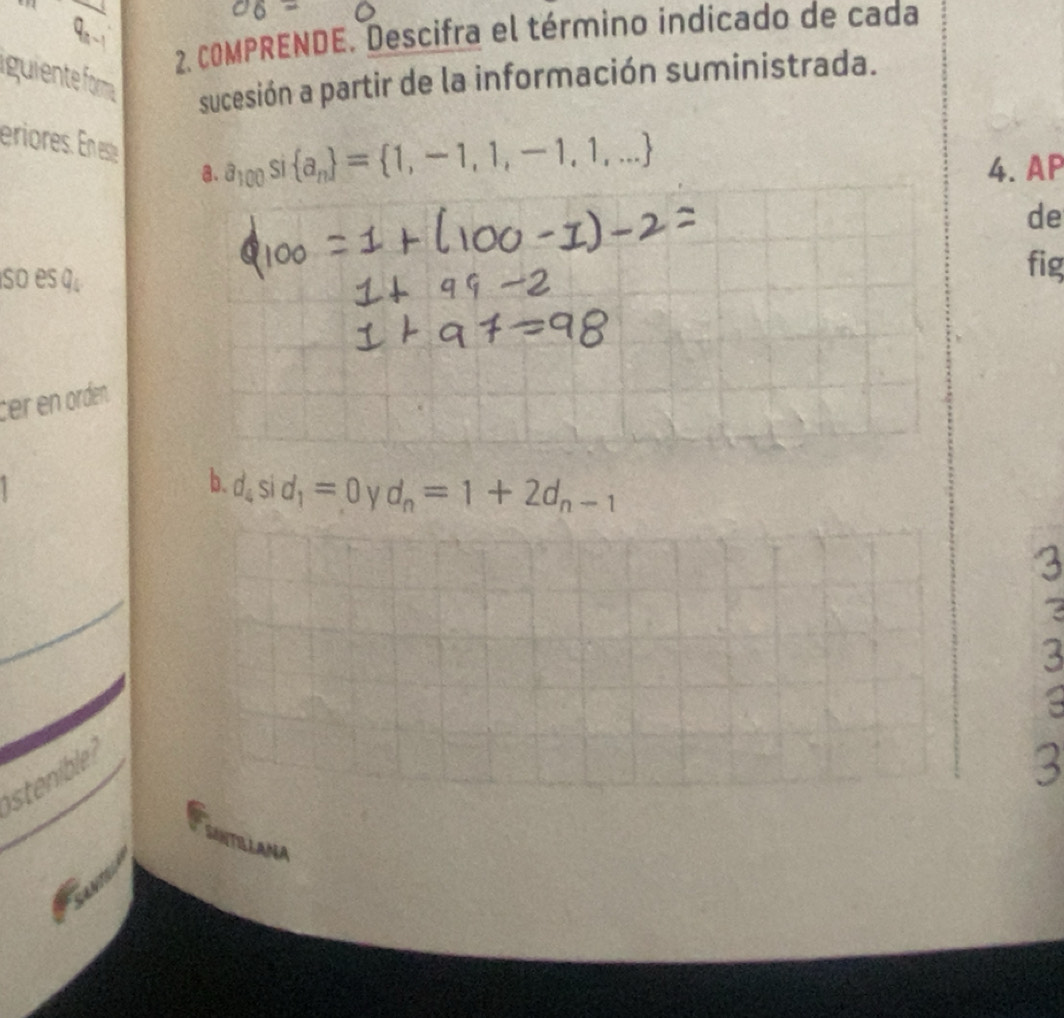 qₙ₋₁
iguiente forma
eriores. En este
so es q₄
cer en orden
1
ostenible?
SANTILLANA
2. COMPRENDE. Descifra el término indicado de cada
sucesión a partir de la información suministrada.
a. a₁₀₀ si {aₙ} = {1, −1, 1, −1, 1, ...}
a₁₀₀ = 1 + (100 - 1) - 2 =
1 + 99 - 2
1 + 97 = 98
b. d₄ si d₁ = 0 y dₙ = 1 + 2dₙ₋₁
SANTILLANA
4. AP
de
fig
3
3
3
3
3